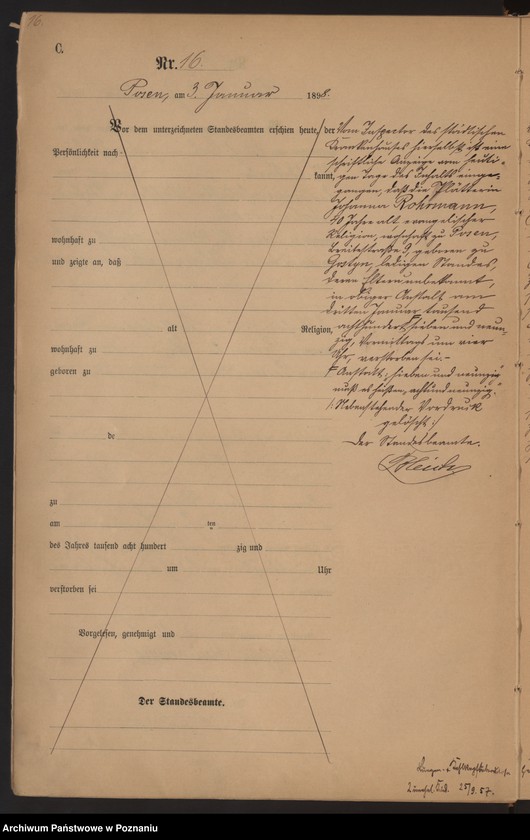 16.
C.
Nr. 16.
Posen, am 3. Januar 1898.
Vor dem unterzeichneten Standesbeamten erschien heute, der
Persönlichkeit nach
kannt,
wohnhaft zu
und zeigte an, daß
alt Religion,
wohnhaft zu
geboren zu
de
zu
am ten
des Jahres tausend acht hundert zig und
um Uhr
verstorben sei
Vorgelesen, genehmigt und
Der Standesbeamte.
Vom Inspector des städtischen
Krankenhauses hierselbst ist eine
schriftliche Anzeige vom heuti-
gen Tage des Inhalts einge-
gangen, daß die Plätterin
Johanna Rohrmann,
Jahre alt evangelischer
Religion, wohnhaft zu Posen,
Breitestraße 9, geboren zu
Gostyn, ledigen Standes,
deren Eltern unbekannt,
in obiger Anstalt am
dritten Januar tausend
achthundert sieben und neun-
zig, Vormittags um vier
Uhr, verstorben sei.-
Anstatt: „sieben und neunzig"
muß es heißen, „acht und neunzig."
/: Nebenstehender Vordruck
gelöscht :/
Der Standesbeamte.
25/9. 57.
Archiwum Państwowe w Poznaniu